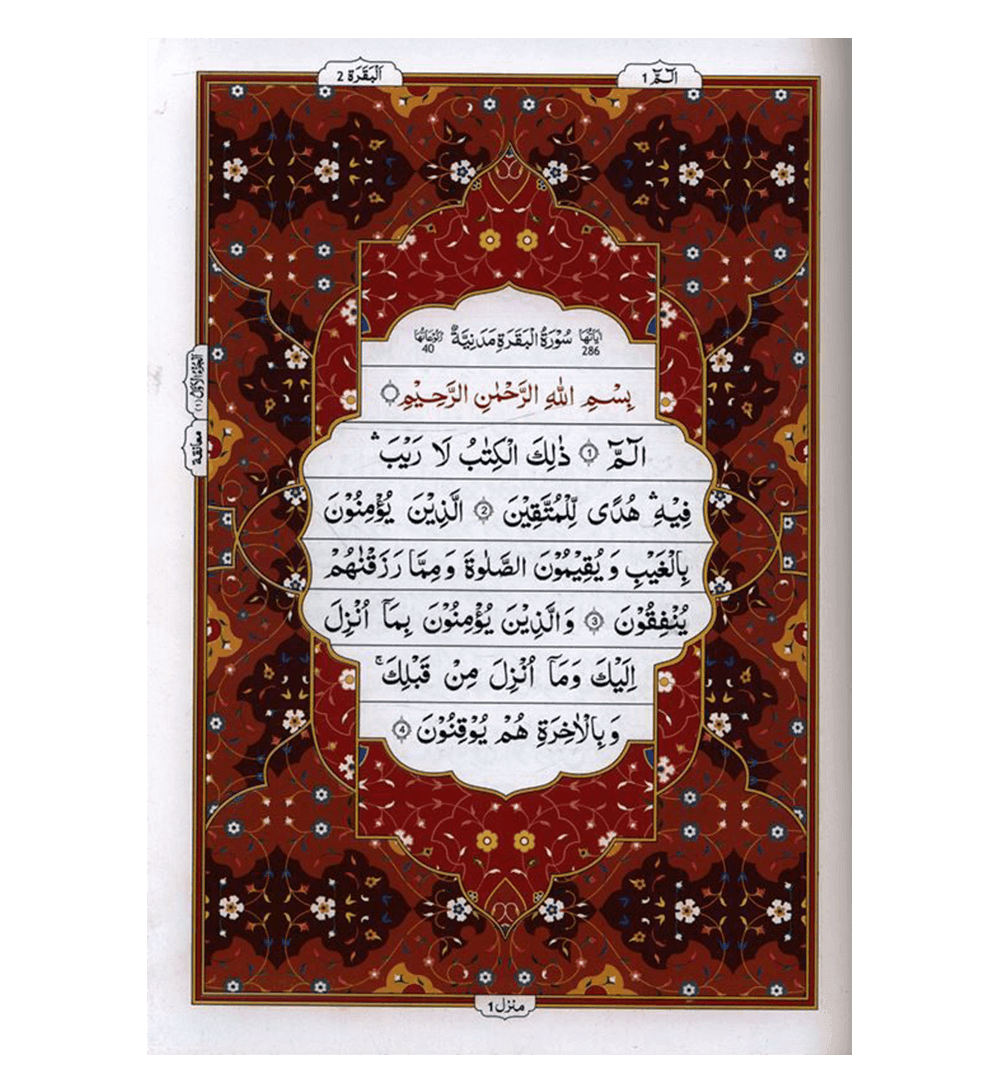 الٓمّٓ 1
اَلْبَقَرَة 2
اٰيَاتُهَا 286
سُوْرَةُ الْبَقَرَةِ مَدَنِيَّةٌ
رُكُوْعَاتُهَا 40
بِسْمِ اللّٰهِ الرَّحْمٰنِ الرَّحِيْمِ
الٓمّٓ ۝1 ذٰلِكَ الْكِتٰبُ لَا رَيْبَ ۛ
فِيْهِ ۛ هُدًى لِّلْمُتَّقِيْنَ ۝2 الَّذِيْنَ يُؤْمِنُوْنَ
بِالْغَيْبِ وَيُقِيْمُوْنَ الصَّلٰوةَ وَمِمَّا رَزَقْنٰهُمْ
يُنْفِقُوْنَ ۝3 وَالَّذِيْنَ يُؤْمِنُوْنَ بِمَاۤ اُنْزِلَ
اِلَيْكَ وَمَاۤ اُنْزِلَ مِنْ قَبْلِكَ ۚ
وَبِالْاٰخِرَةِ هُمْ يُوْقِنُوْنَ ۝4
الجزء الاول (1)
معانقة
منزل 1